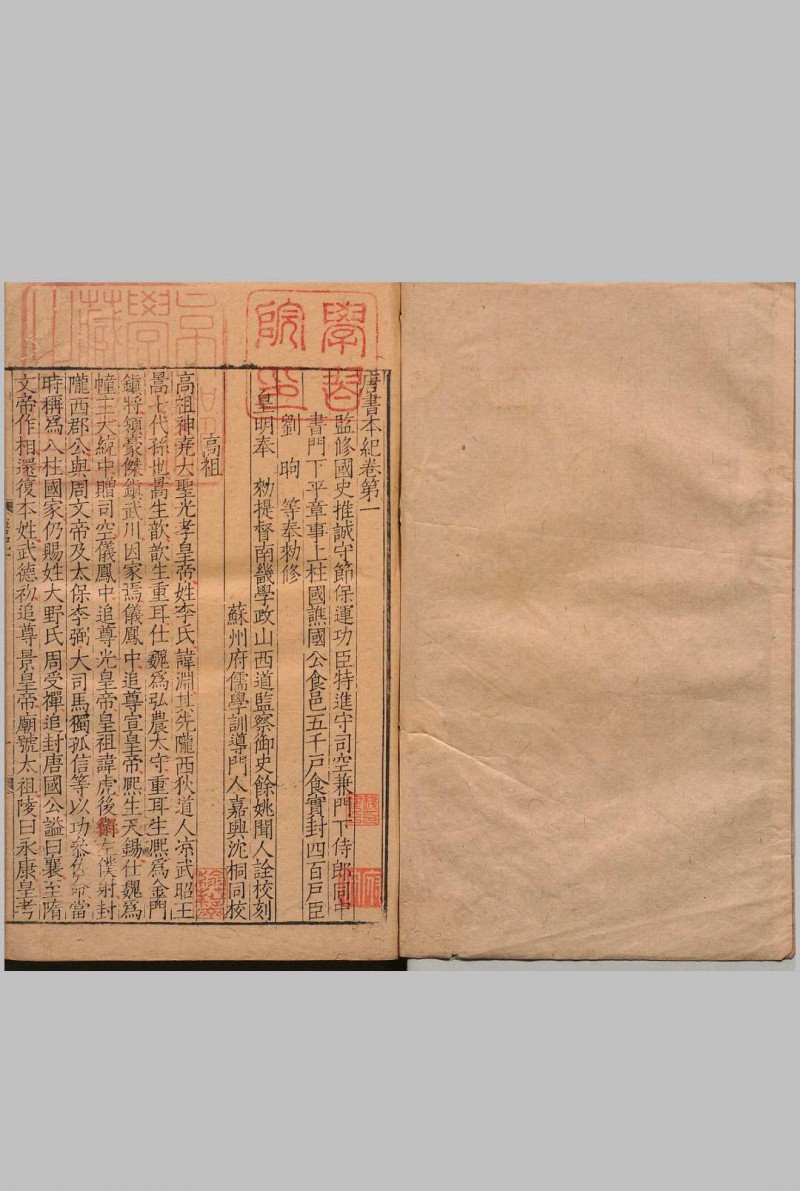 唐書本紀卷第一
監修國史推誠守節保運功臣特進守司空兼門下侍郎同中
書門下平章事上柱國譙國公食邑五千戶食實封四百戶臣
劉昫等奉勑修
皇明奉勑提督南畿學政山西道監察御史餘姚聞人詮校刻
蘇州府儒學訓導門人嘉興沈桐同校
高祖
高祖神堯大聖光孝皇帝姓李氏諱淵其先隴西狄道人凉武昭王
暠七代孫也暠生歆歆生重耳仕魏爲弘農太守重耳生熈爲金門
鎮將領豪傑鎮武川因家焉儀鳳中追尊宣皇帝熈生天錫仕魏爲
幢主大統中贈司空儀鳳中追尊光皇帝皇祖諱虎後魏左僕射封
隴西郡公與周文帝及太保李弼大司馬獨孤信等以功參佐命當
時稱爲八柱國家仍賜姓大野氏周受禪追封唐國公謚曰襄至隋
文帝作相還復本姓武德初追尊景皇帝廟號太祖陵曰永康皇考
學習
院印